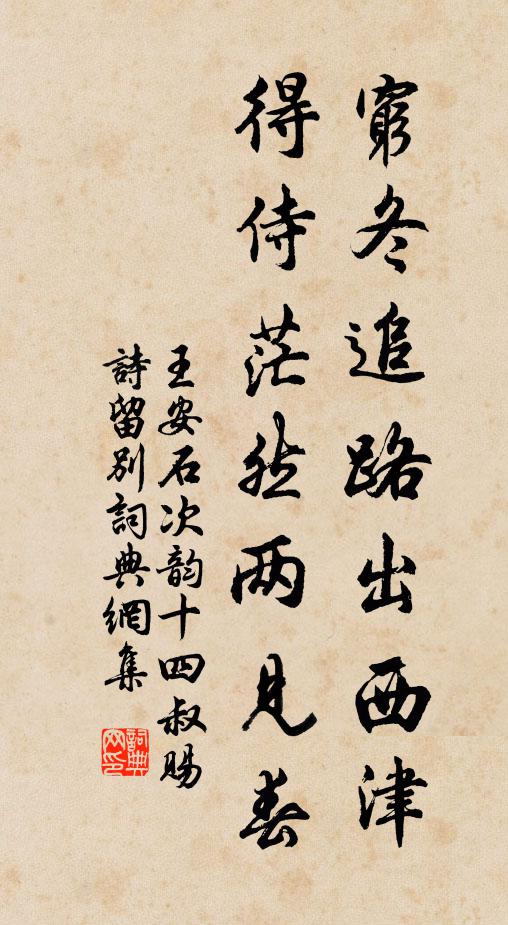 窮冬追路出西津
得侍茫然两見春
王安石次韵十四叔賜
詩留别詞典網集
詞典網印